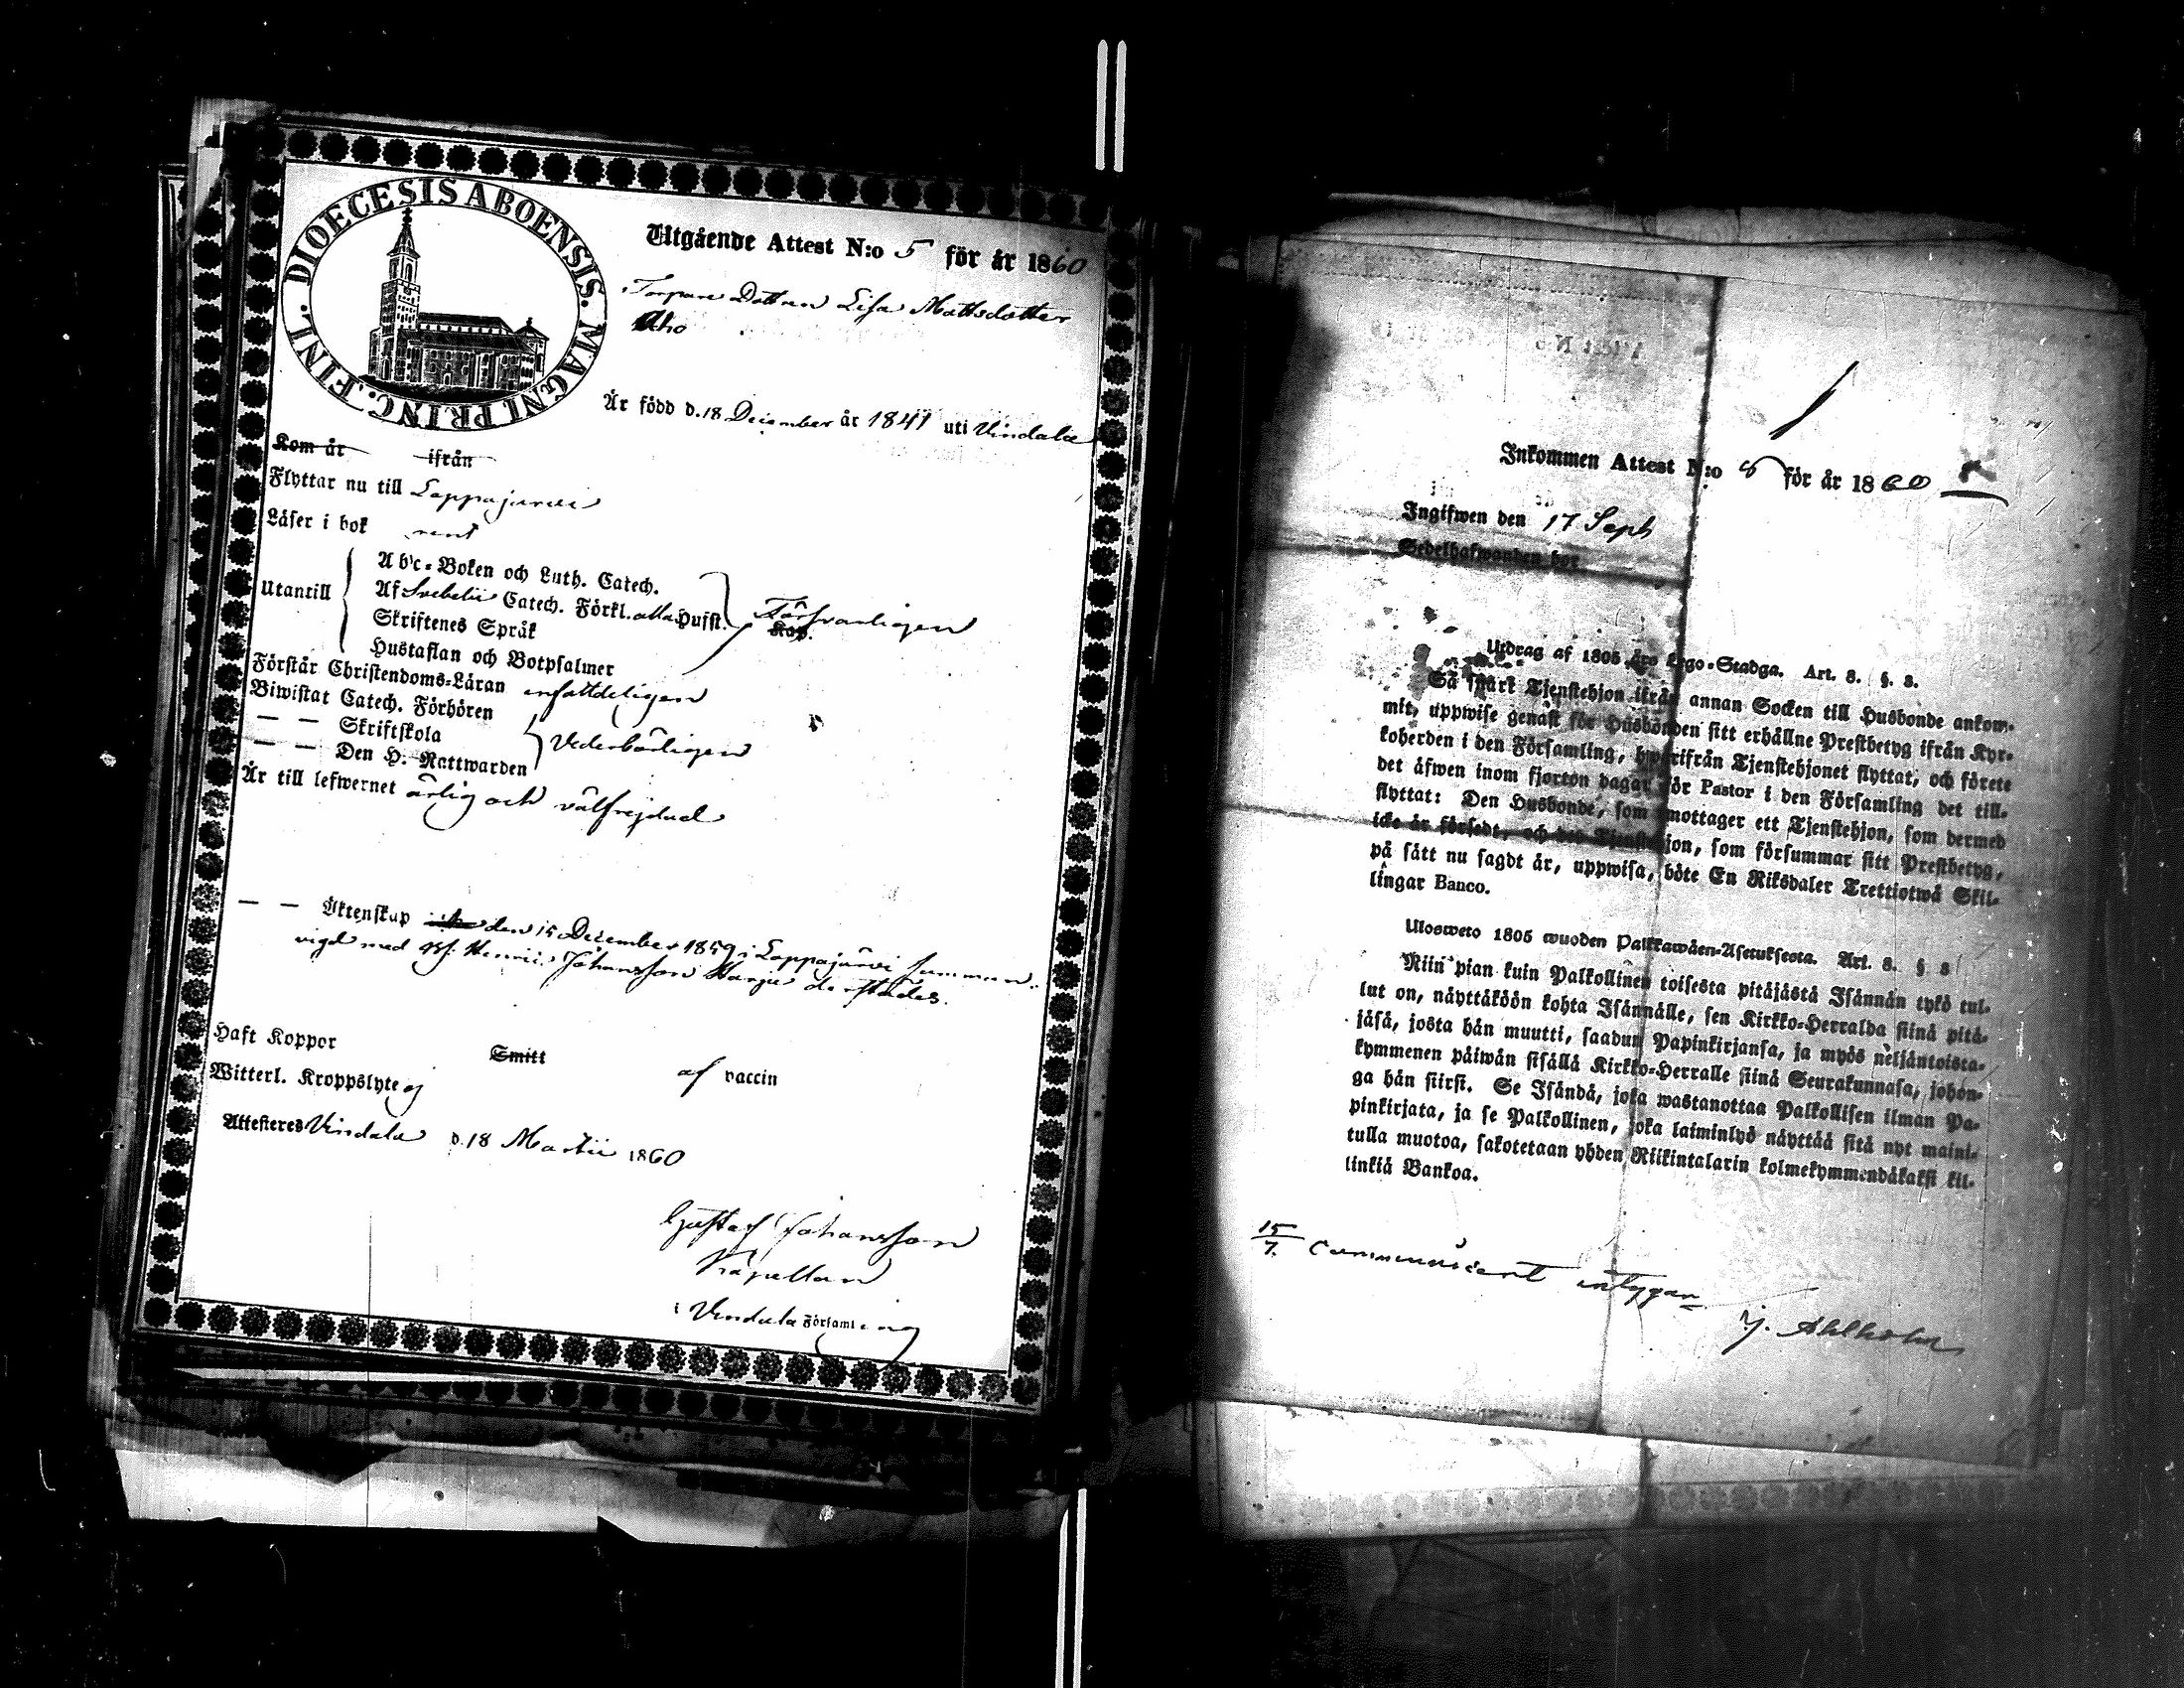 DIOECESIS ABOENSIS. MAGNI PRINC. FINL.
Utgående Attest N:o 5 för år 1860
Torpare Dottren Lisa Mattsdotter
Aho
Är född d. 18 December år 1841 uti Vindala
Kom år ifrån
Flyttar nu till Lappajärvi
Läser i bok rent
Utantill
Abc-Boken och Luth. Catech.
Af Svebelii Catech. Förkl. alla Hufst.
Kap.
Försvarligen
Skriftenes Språk
Hustaflan och Botpsalmer
Förstår Christendoms-Läran enfaldeligen
Biwistat Catech. Förhören
— — Skriftskola
Vederbörligen
— — Den H. Nattwarden
Är till lefwernet ärlig och välfrejdad
— — Äktenskap den 15 December 1859 i Lappajärvi samman-
vigd med Henric Johansson Harju derstädes.
Haft Koppor Smitt af vaccin
Witterl. Kroppslyte ej
Attesteras Vindala d. 18 Martii 1860
Gustaf Johansson
Kapellan
i Vindala Församling
Inkommen Attest N:o 8 för år 1860
Ingifwen den 17 Sept
Sedelhafwanden bor
Utdrag af 1805 års Lego-Stadga. Art. 8. §. 8.
Så snart Tjenstehjon ifrån annan Socken till Husbonde ankom-
mit, uppwise genast för Husbonden sitt erhållne Prestbetyg ifrån Kyr-
koherden i den Församling, hwarifrån Tjenstehjonet flyttat, och förete
det äfwen inom fjorton dagar för Pastor i den Församling det till-
flyttat: Den Husbonde, som emottager ett Tjenstehjon, som dermed
icke är försedt, och det Tjenstehjon, som försummar sitt Prestbetyg,
på sätt nu sagdt är, uppwisa, böte En Riksdaler Trettiotwå Skil-
lingar Banco.
Ulosweto 1805 wuoden Palkkawäen-Asetuksesta. Art. 8. § 8
Niin pian kuin Palkollinen toisesta pitäjästä Isännän tykö tul-
lut on, näyttäköön kohta Isännälle, sen Kirkko-Herralda siinä pitä-
jäsä, josta hän muutti, saadun Papinkirjansa, ja myös neljäntoista-
kymmenen päiwän sisällä Kirkko-Herralle siinä Seurakunnasa, johon-
ga hän siirsi. Se Isändä, joka wastanottaa Palkollisen ilman Pa-
pinkirjata, ja se Palkollinen, joka laiminlyö näyttää sitä nyt maini-
tulla muotoa, sakotetaan yhden Riikintalarin kolmekymmendäkaksi kil-
linkiä Bankoa.
15/7. Communicerat intygar
J. Ahlholm